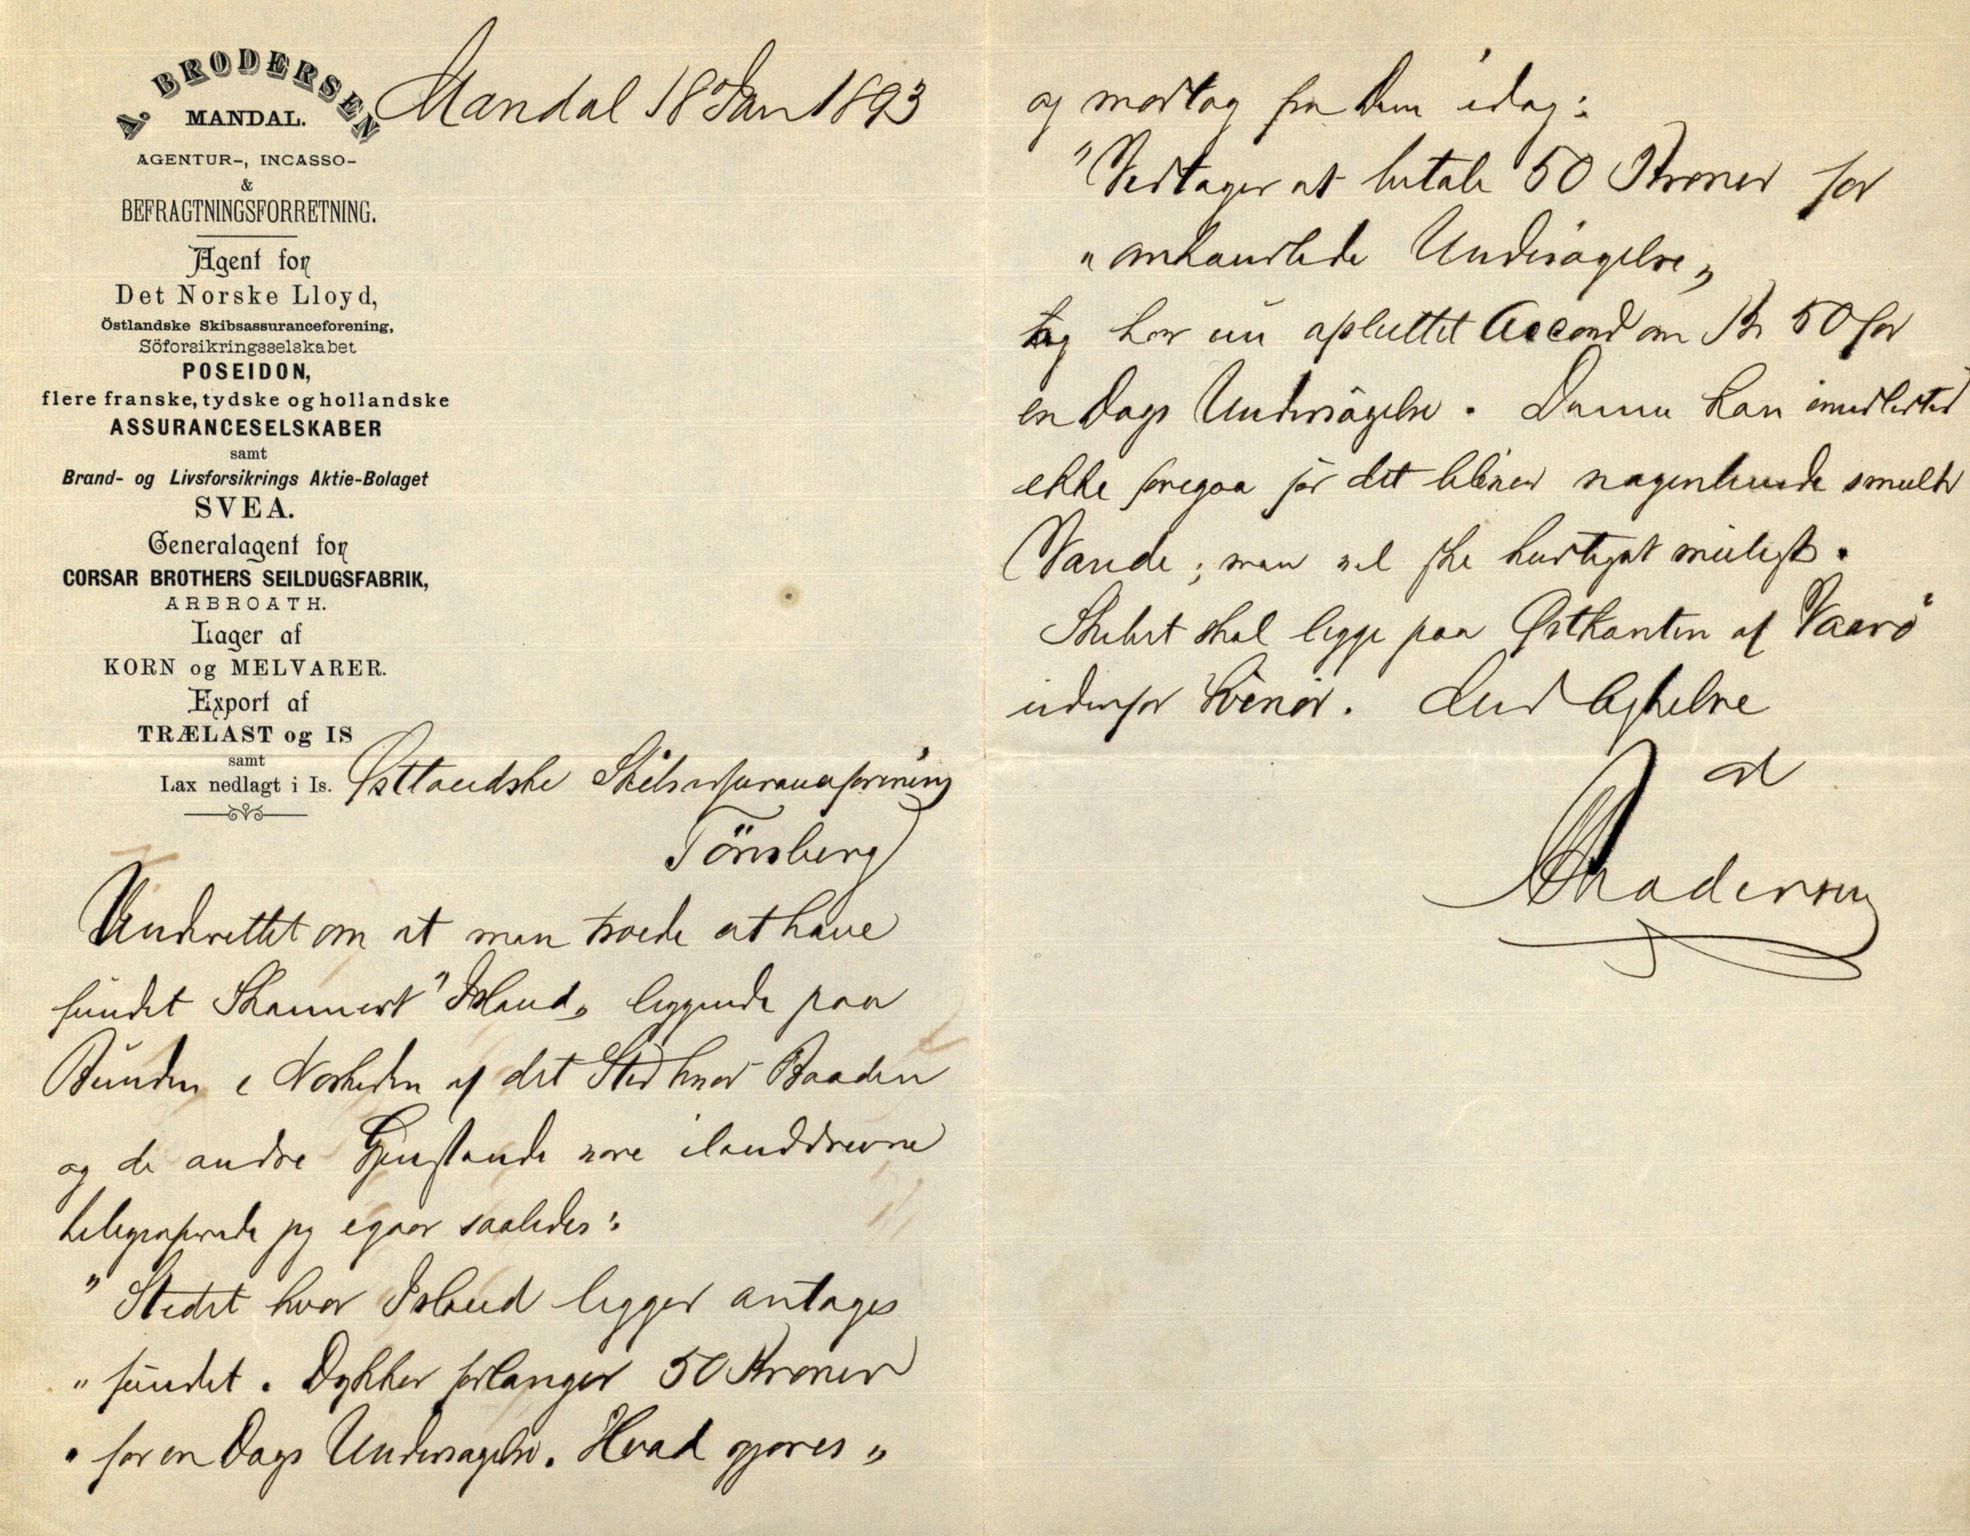 A. BRODERSEN
MANDAL.
AGENTUR-, INCASSO-
&
BEFRAGTNINGSFORRETNING.
Agent for
Det Norske Lloyd,
Östlandske Skibsassuranceforening,
Söforsikringsselskabet
POSEIDON,
flere franske, tydske og hollandske
ASSURANCESELSKABER
samt
Brand- og Livsforsikrings Aktie-Bolaget
SVEA.
Generalagent for
CORSAR BROTHERS SEILDUGSFABRIK,
ARBROATH.
Lager af
KORN og MELVARER.
Export af
TRÆLAST og IS
samt
Lax nedlagt i Is.
Mandal 18 Jan 1893
Østlandske Skibsassuranceforening
Tönsberg
Underrettet om at man troede at have
fundet Skonnert "Island" liggende paa
Bunden i Nærheden af det Sted hvor Baaden
og de andre Gjenstande vare ilanddrevne
telegraferede jeg igaar saaledes:
"Stedet hvor Island ligger antages
"fundet. Dykker forlanger 50 Kroner
"for en Dags Undersøgelse. Hvad gjøres"
og modtog fra Dem idag:
"Vedtager at betale 50 Kroner for
"omhandlede Undersøgelse"
Jeg har nu afsluttet Accord om Kr 50 for
en Dags Undersøgelse. Denne kan imidlertid
ikke foregaa før det bliver nogenlunde smult
Vande; men vil ske hurtigst muligt.
Skibet skal ligge paa Østkanten af Vaarö
udenfor Svinör. Med Agtelse
A Brodersen